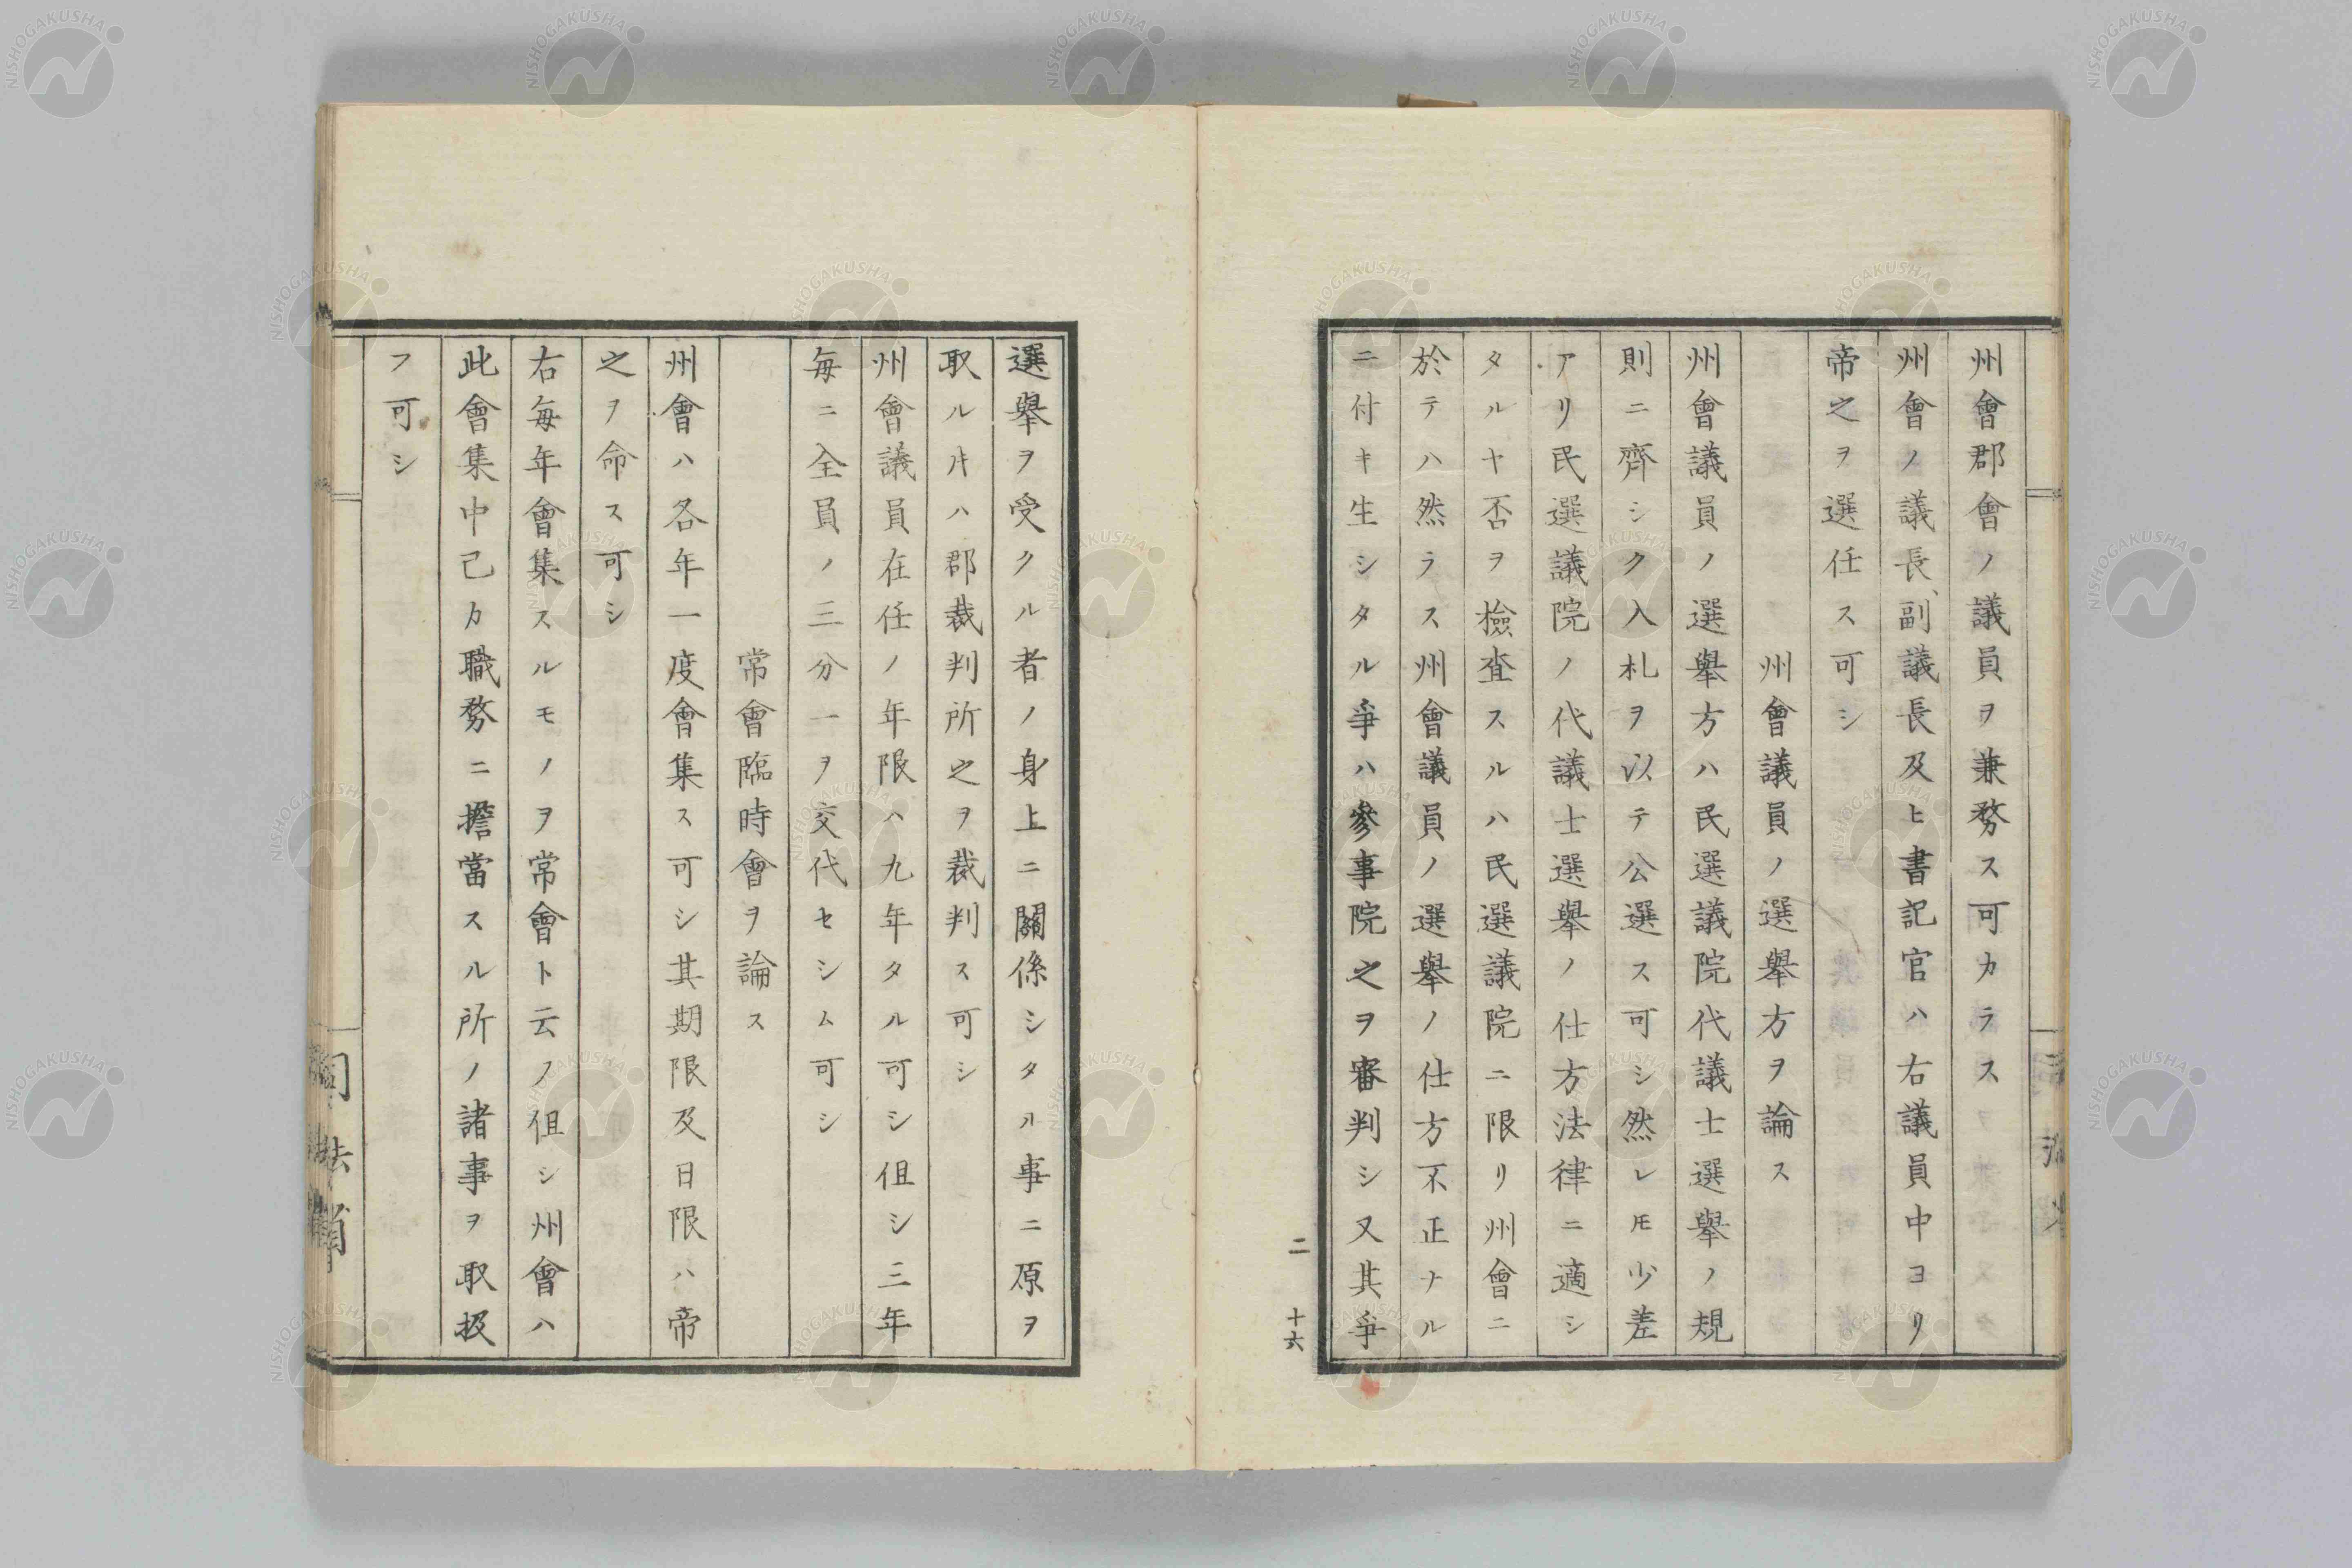 州會郡會ノ議員ヲ兼務ス可カラス
州會ノ議長、副議長及ヒ書記官ハ右議員中ヨリ
帝之ヲ選任ス可シ
州會議員ノ選擧方ヲ論ス
州會議員ノ選擧方ハ民選議院代議士選擧ノ規
則ニ齊シク入札ヲ以テ公選ス可シ然レ𪜈少差
アリ民選議院ノ代議士選擧ノ仕方法律ニ適シ
タルヤ否ヲ檢査スルハ民選議院ニ限リ州會ニ
於テハ然ラス州會議員ノ選擧ノ仕方不正ナル
ニ付キ生シタル爭ハ參事院之ヲ審判シ又其爭
二
十六
選擧ヲ受クル者ノ身上ニ關係シタル事ニ原ヲ
取ル𪜈ハ郡裁判所之ヲ裁判ス可シ
州會議員在任ノ年限ハ九年タル可シ伹シ三年
每ニ全員ノ三分一ヲ交代セシム可シ
常會臨時會ヲ論ス
州會ハ各年一度會集ス可シ其期限及日限ハ帝
之ヲ命ス可シ
右每年會集スルモノヲ常會ト云フ伹シ州會ハ
此會集中己カ職務ニ擔當スル所ノ諸事ヲ取扱
フ可シ
NISHOGAKUSHA